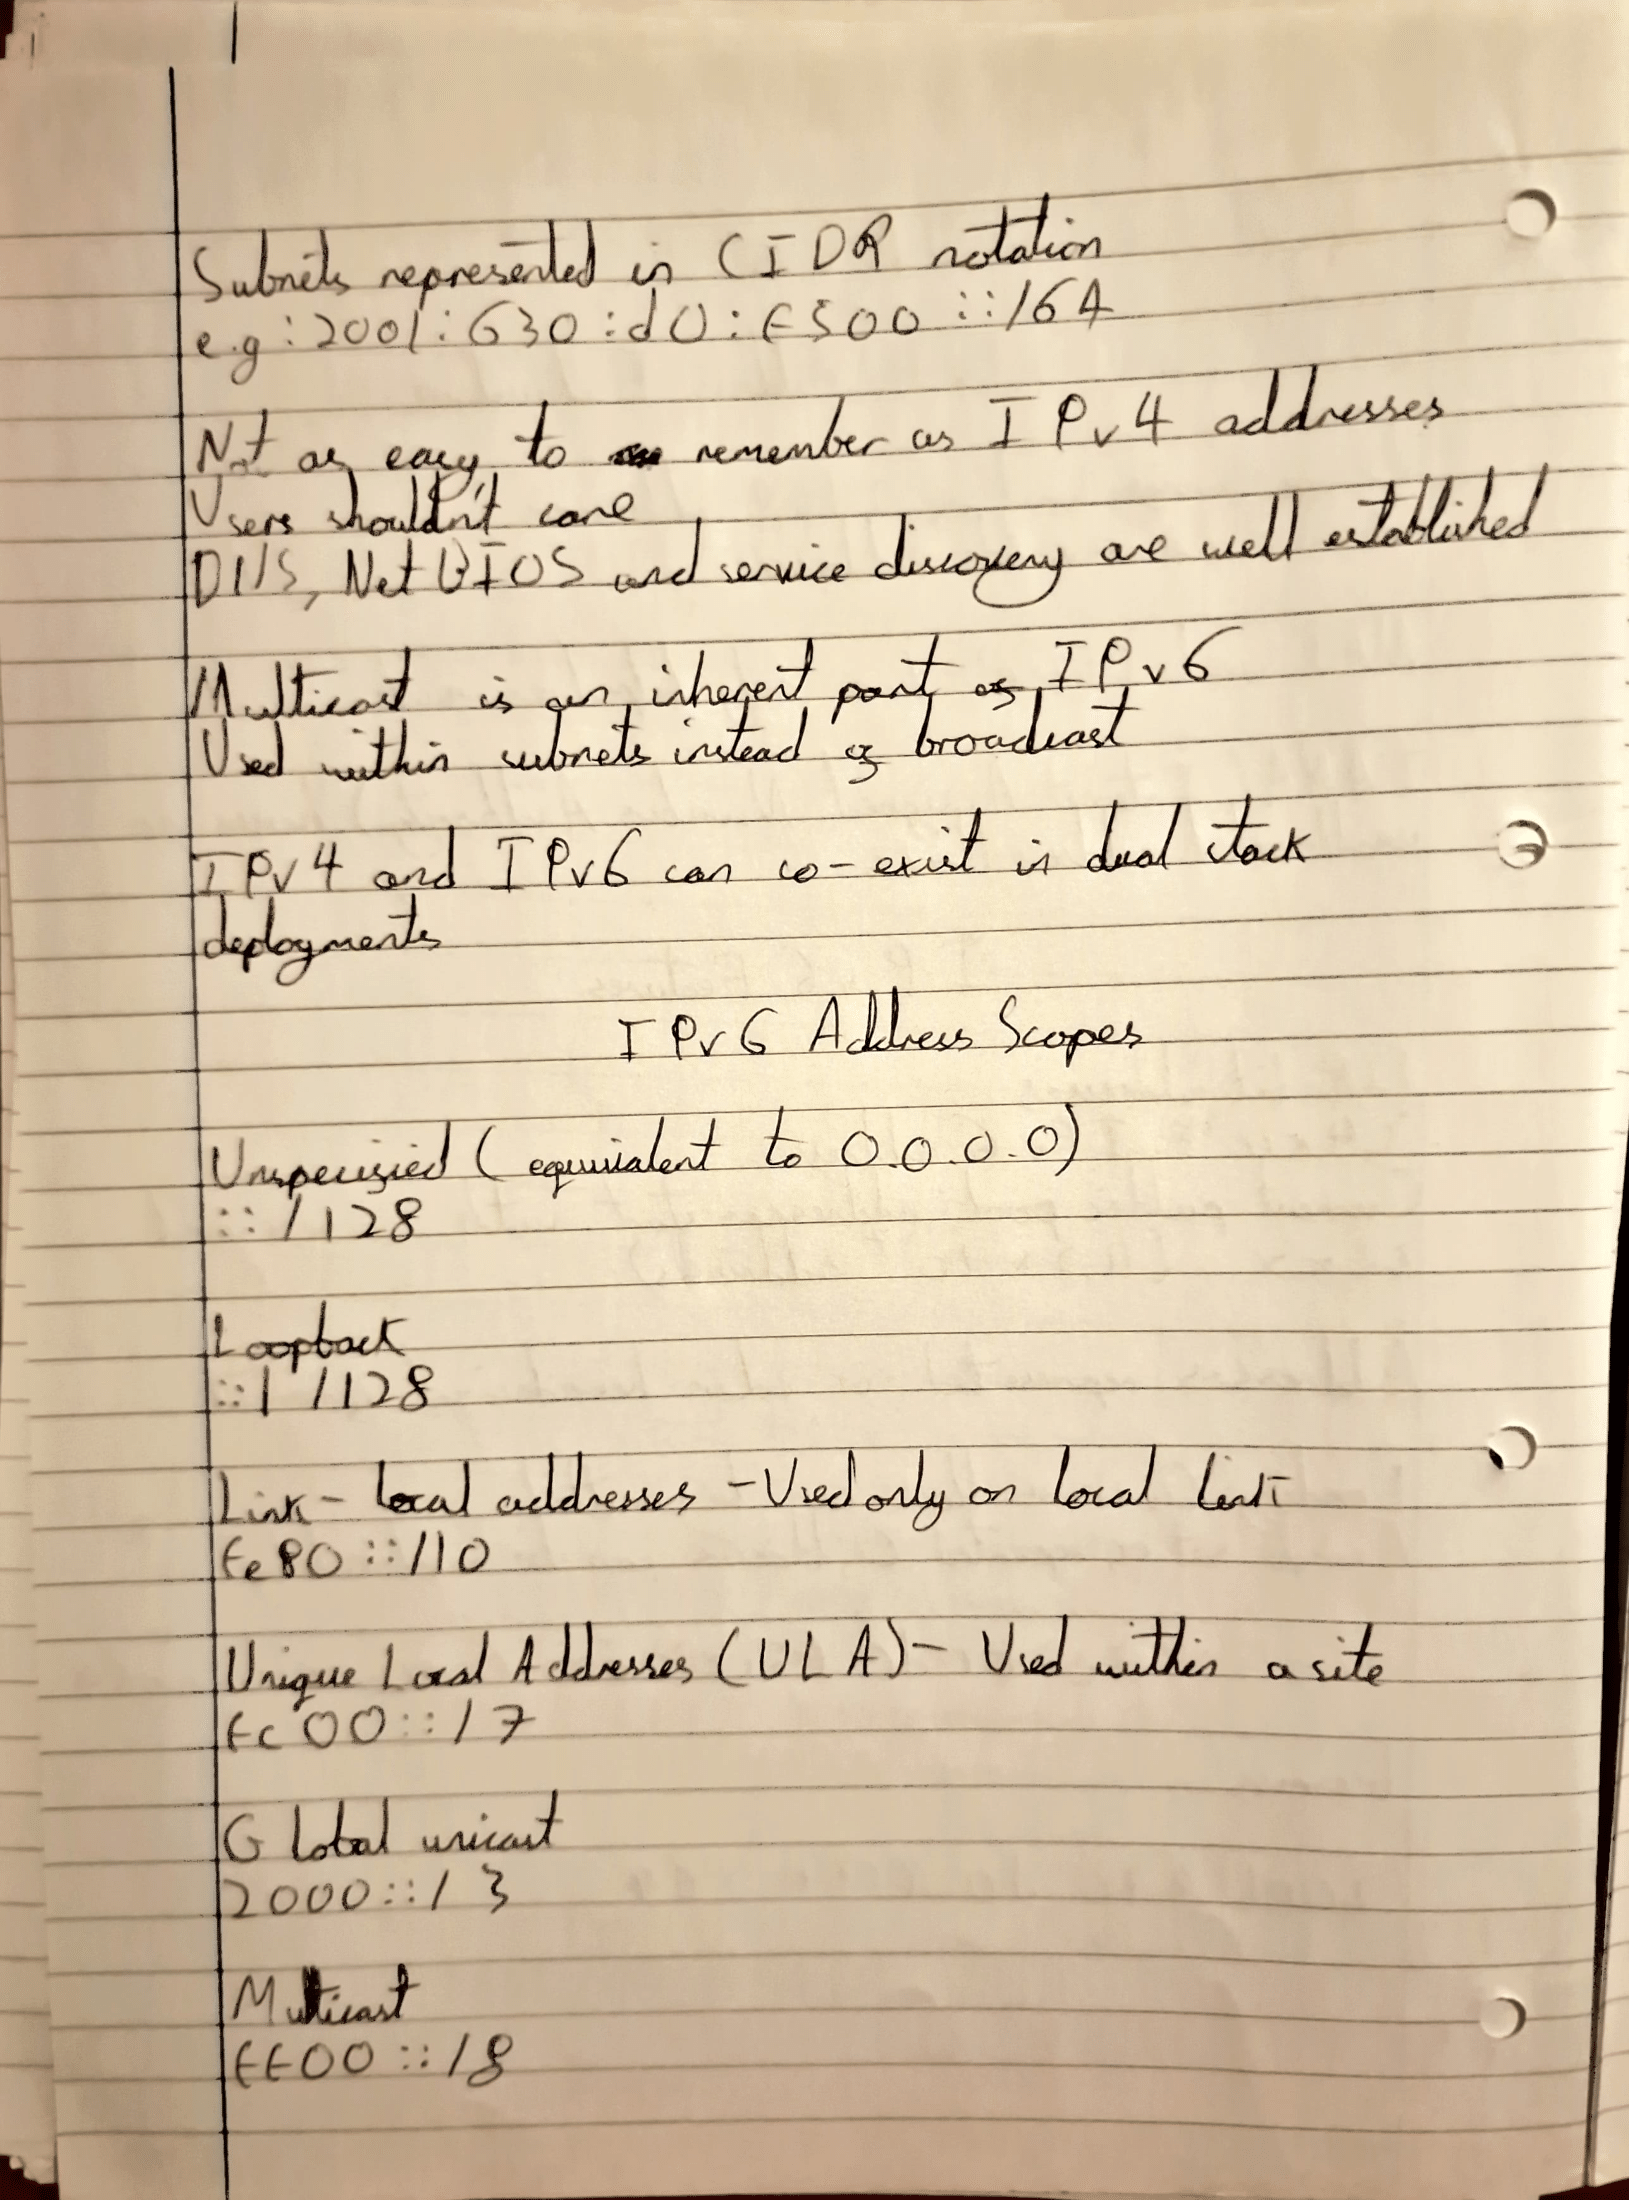 Subnets represented in CIDR notation
e.g: 2001:630:d0:f500::/64
Not as easy to remember as IPv4 addresses
Users shouldn't care
DNS, NetBIOS and service discovery are well established
Multicast is an inherent part of IPv6
Used within subnets instead of broadcast
IPv4 and IPv6 can co-exist in dual stack
deployments
IPv6 Address Scopes
Unspecified (equivalent to 0.0.0.0)
::/128
Loopback
::1/128
Link-local addresses - Used only on local link
fe80::/10
Unique Local Addresses (ULA) - Used within a site
fc00::/7
Global unicast
2000::/3
Multicast
ff00::/8